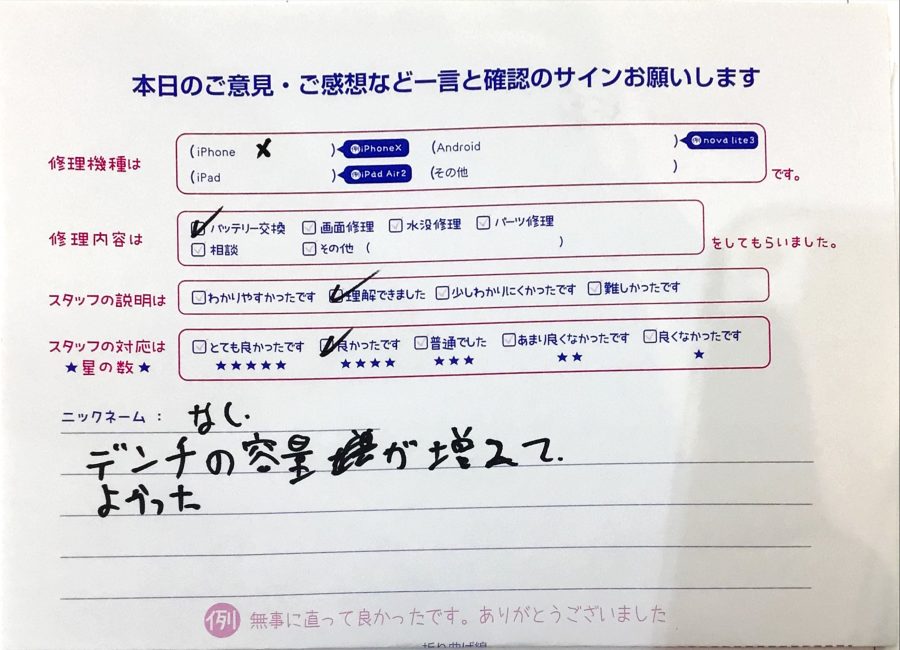 本日のご意見・ご感想など一言と確認のサインお願いします
修理機種は
(iPhone X ) 例iPhoneX (Android ) 例nova lite3
(iPad ) 例iPad Air2 (その他 )
です。
修理内容は
バッテリー交換 画面修理 水没修理 パーツ修理
相談 その他 ( )
をしてもらいました。
スタッフの説明は
わかりやすかったです 理解できました 少しわかりにくかったです 難しかったです
スタッフの対応は
★星の数★
とても良かったです 良かったです 普通でした あまり良くなかったです 良くなかったです
★★★★★ ★★★★ ★★★ ★★ ★
ニックネーム: なし.
デンチの容量が増えて.
よかった
例 無事に直って良かったです。ありがとうございました